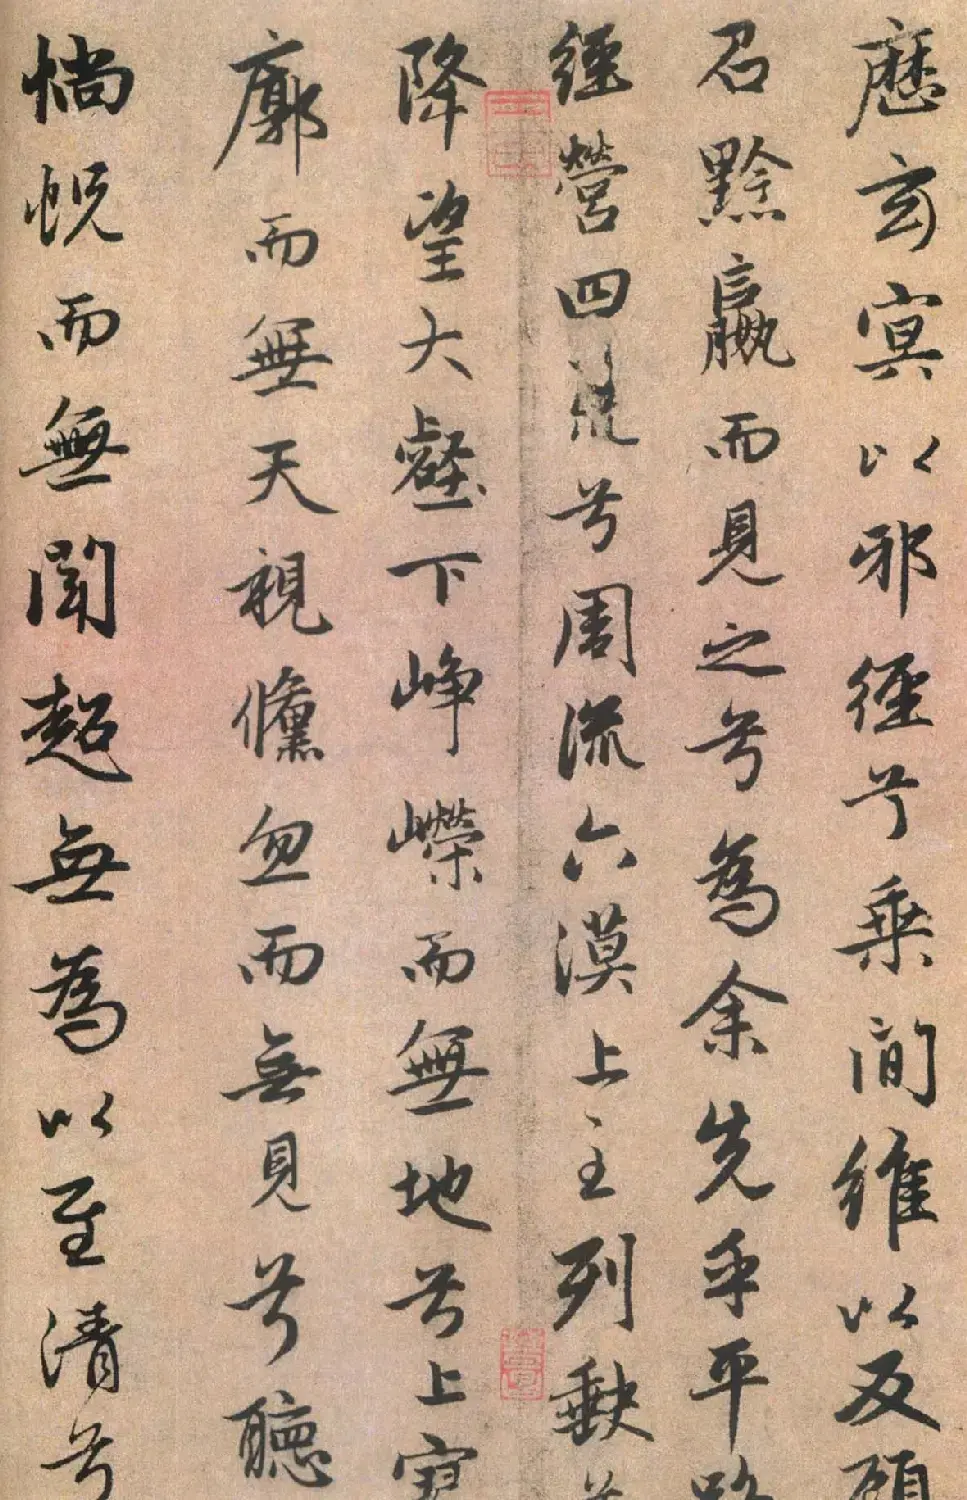 歷玄冥以邪徑兮乘間維以反顧
召黔嬴而見之兮為余先乎平路
經營四荒兮周流六漠上至列缺兮
降望大壑下崢嶸而無地兮上寥
廓而無天視儵忽而無見兮聽
惝怳而無聞超無為以至清兮